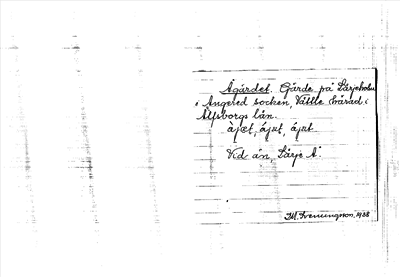 Ågärdet. Gärde på Lärjeholm
i Angered socken, Vättle härad i
Älfsborgs län.
àjǽt, ájut, ájut
Vid ån, Lärje Å.
M. Svenungsson, 1928